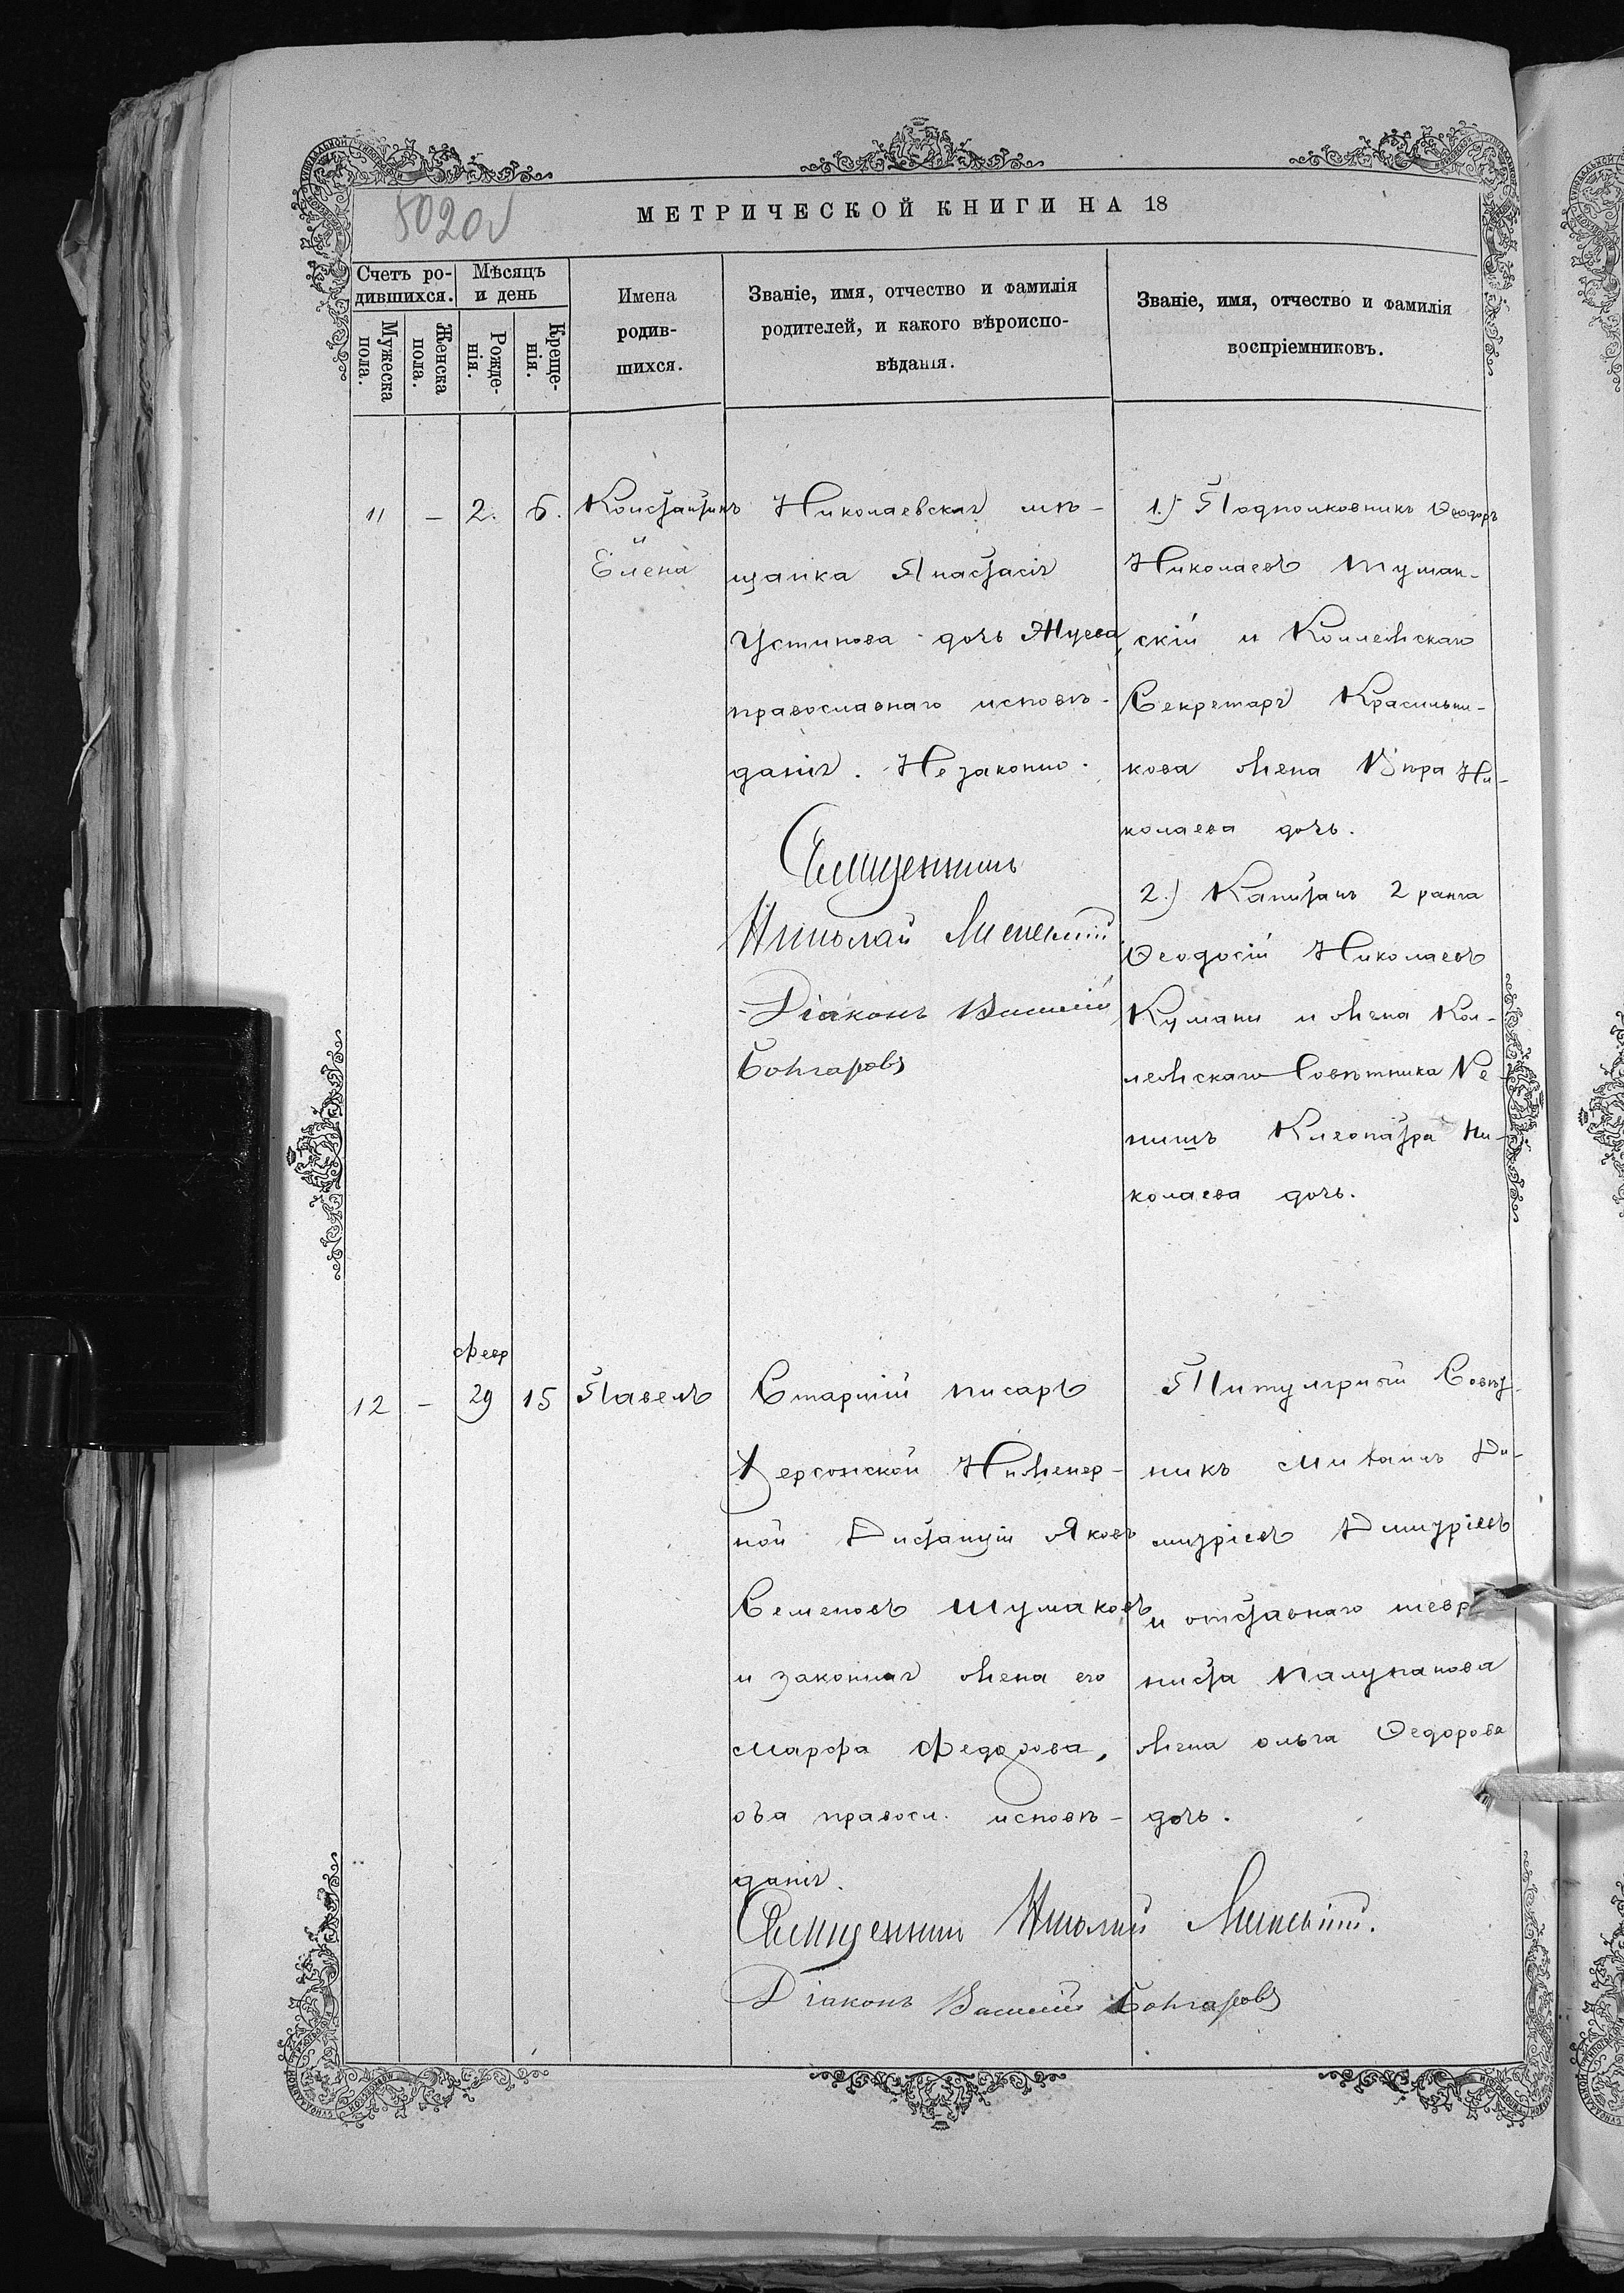 5020
МЕТРИЧЕСКОЙ КНИГИ НА 18
Счетъ ро-
дившихся.
Мѣсяцъ
и день
Мужеска
пола.
Женска
пола.
Рожде-
нія.
Креще-
нія.
Имена
родив-
шихся.
Званіе, имя, отчество и фамилія
родителей, и какого вѣроиспо-
вѣданія.
Званіе, имя, отчество и фамилія
воспріемниковъ.
11 – 2. 6.
Константинъ
и
Елена
Николаевская мѣ-
щанка Анастасія
Устинова дочь Жуева,
православнаго исповѣ-
данія. Незаконно.
Священникъ
Николай
Діаконъ Василій
1.) Подполковникъ Ѳеодоръ
Николаевъ Туман-
скій и Коллежскаго
Секретаря Красильни-
кова жена Вѣра Ни-
колаева дочь.
2.) Капитанъ 2 ранга
Ѳеодосій Николаевъ
Кумани и жена Кол-
лежскаго Совѣтника
Клеопатра Ни-
колаева дочь.
февр
12 – 29 15 Павелъ
Старшій писарь
Херсонской Инженер-
ной Дистанціи Яковъ
Семеновъ Шумаковъ
и законная жена его
Марфа Федорова,
оба правосл. исповѣ-
данія.
Титулярный Совѣт-
никъ Михаилъ Ди-
митріевъ Димитріевъ
и отставнаго
жена Ольга Ѳедорова
дочь.
Священникъ Николай
Діаконъ Василій